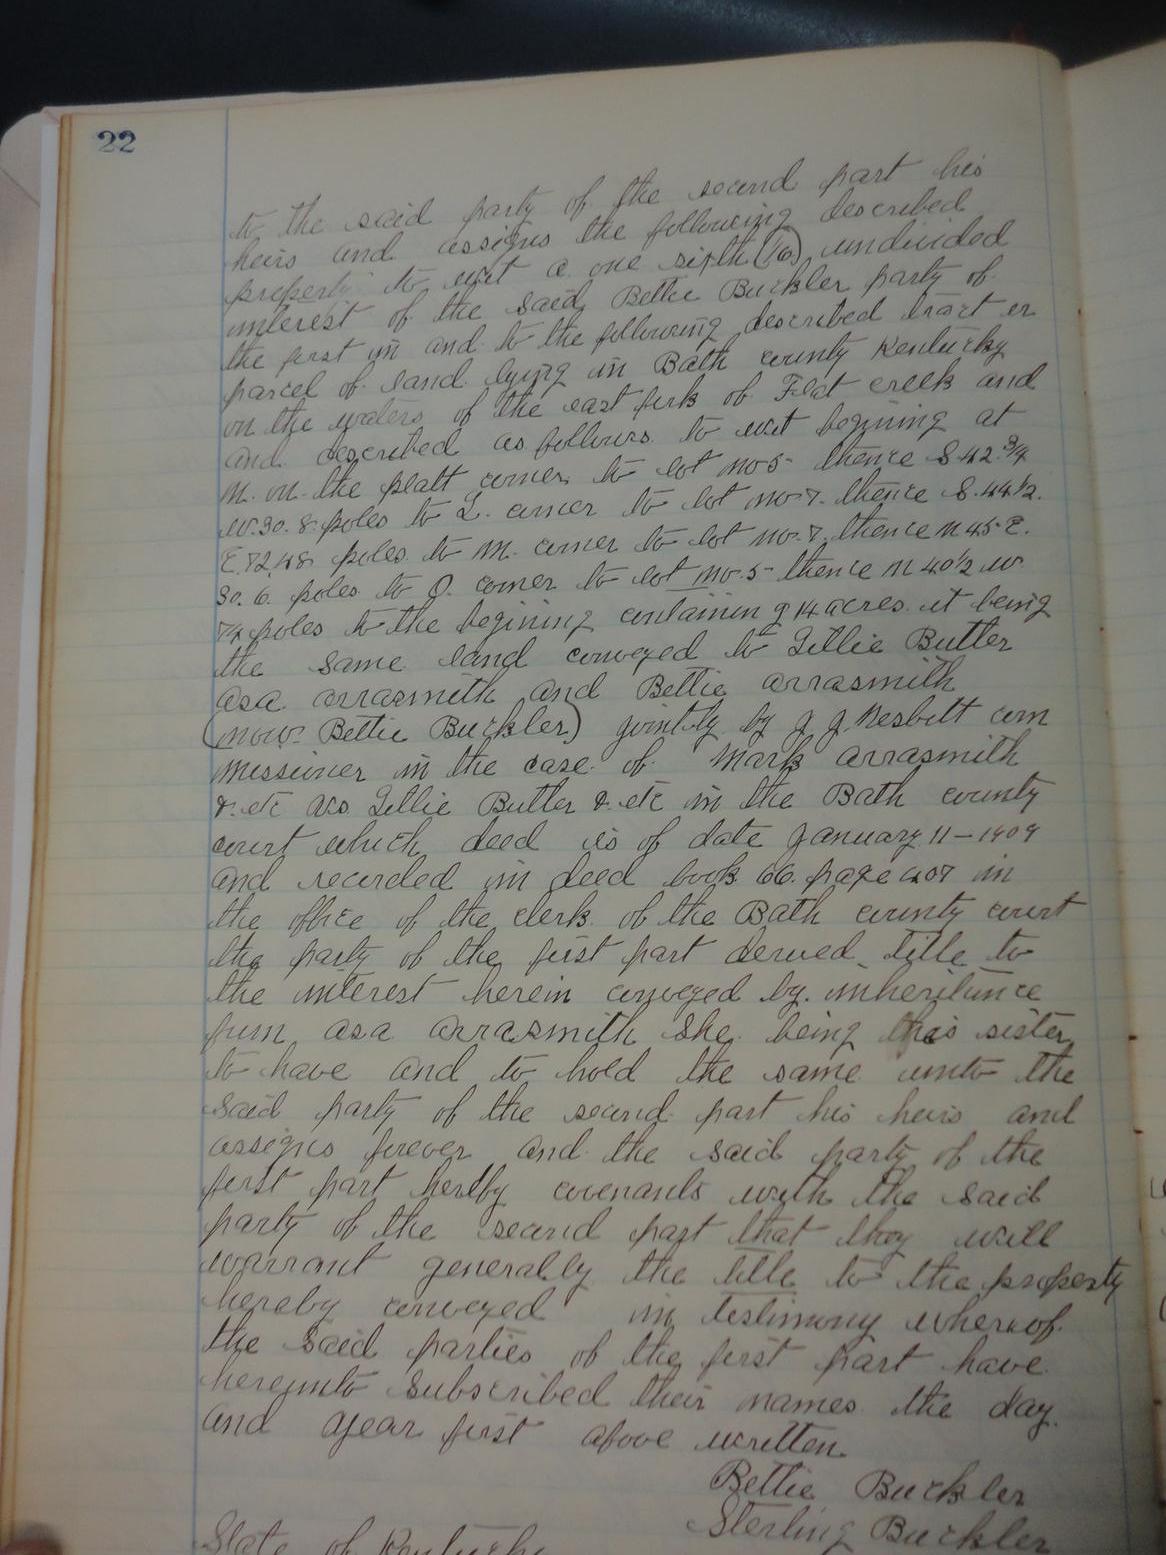 22
to the said party of the second part his
heirs and assigns the following described
property to wit a one sixth (1/6) undivided
interest of the said Bettie Buckler party of
the first in and to the following described tract or
parcel of land lying in Bath county Kentucky
on the waters of the east fork of Flat creek and
and described as follows to wit begining at
M. on the platt corner to lot no 5 thence S 42 3/4
W. 30. 8 poles to L. corner to lot no 7. thence S. 44 1/2.
E. 72.48 poles to M. corner to lot no. 7 thence N 45 E.
30. 6. poles to O. corner to lot no. 5 thence N 40 1/2 W
74 poles to the begining containing 14 acres it being
the same land conveyed to Lillie Butler
asa arrasmith and Bettie arrasmith
(now Bettie Buckler) jointly by J. J. Nesbitt com
missioner in the case of Mark arrasmith
&. etc vs Lillie Butler &. etc in the Bath county
court which deed is of date January 11 - 1909
and recorded in deed book 66. page 407 in
the office of the clerk of the Bath county court
the party of the first part derived title to
the interest herein conveyed by inheritance
from asa arrasmith she being his sister
to have and to hold the same unto the
said party of the second part his heirs and
assigns forever and the said party of the
first part hereby covenants with the said
party of the second part that they will
warrant generally the title to the property
hereby conveyed in testimony whereof
the said parties of the first part have
hereunto subscribed their names the day
and year first above written
Bettie Buckler
Sterling Buckler
State of Kentucky